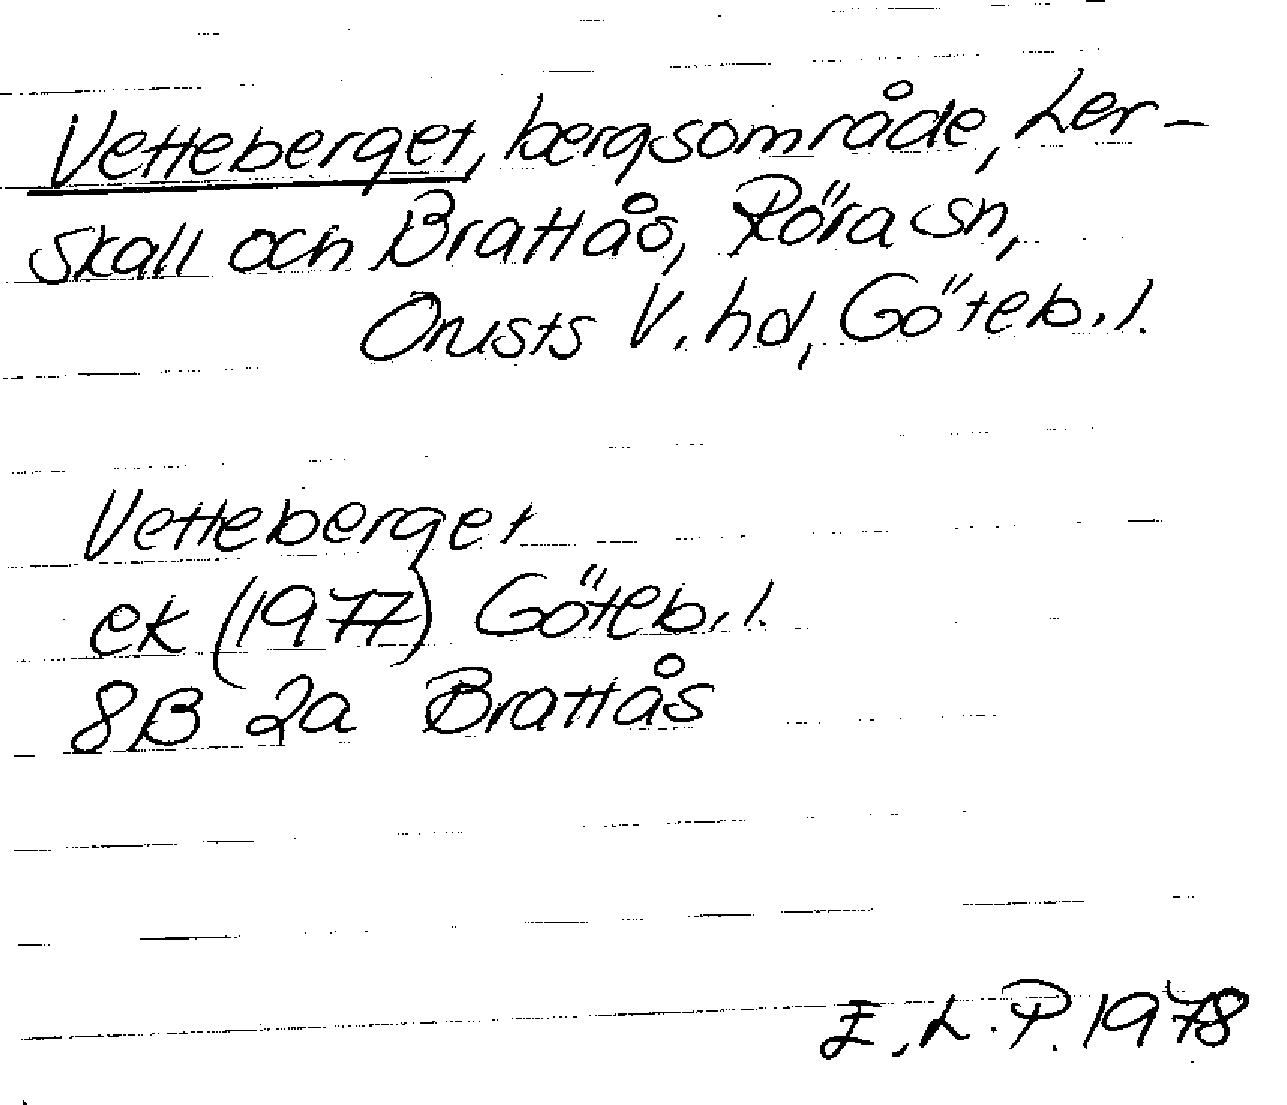 Vetteberget, bergsområde, Ler-
skall och Brattås, Röra sn,
Orusts V. hd, Göteb. l.
Vetteberget
ek (1977) Göteb. l.
8B 2a Brattås
E. L. P. 1978